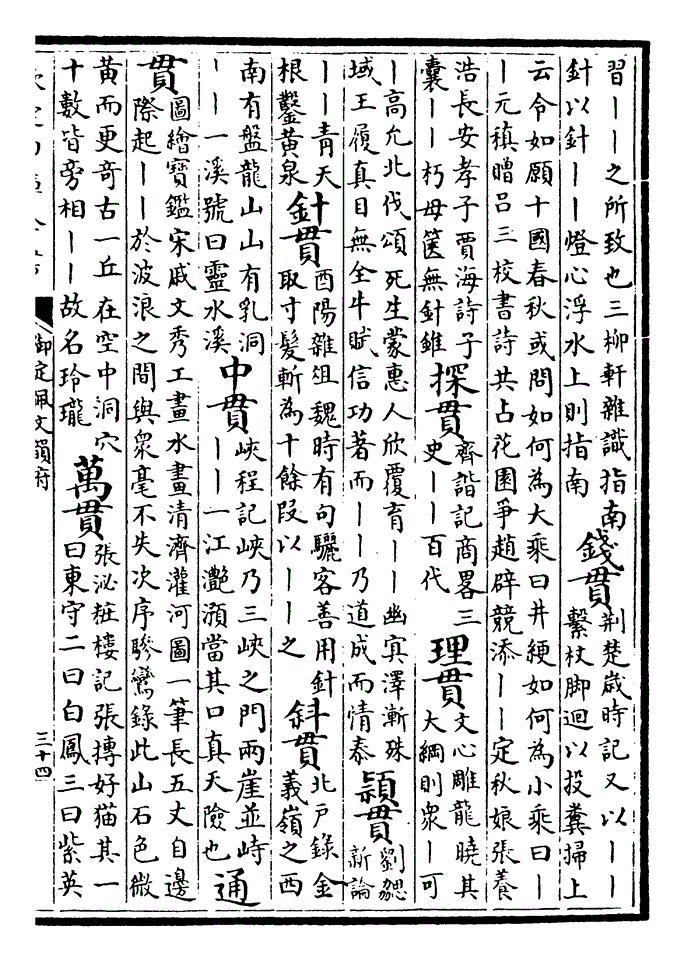 習――之所致也三柳軒雜識指南
針以針――燈心浮水上則指南
錢貫
荆楚歲時記又以――
繫杖脚迴以投糞掃上
云令如願十國春秋或問如何為大乘曰井綆如何為小乘曰―
―元稹贈吕三校書詩共占花園爭趙辟競添――定秋娘張養
浩長安孝子賈海詩子
囊――朽母篋無針錐
探貫
齊諧記商畧三
史――百代
理貫
文心雕龍曉其
大綱則衆―可
―高允北伐頌死生蒙惠人欣覆育――幽㝠澤漸殊
域王履真目無全牛賦信功著而――乃道成而情泰
頴貫
劉勰
新論
――青天
根鑿黄泉
針貫
酉陽雜俎魏時有句驪客善用針
取寸髮斬為十餘段以――之
斜貫
北户錄金
義嶺之西
南有盤龍山山有乳洞
――一溪號曰靈水溪
中貫
峽程記峽乃三峽之門兩崖並峙
――一江灔澦當其口真天險也
通
貫
圖繪寶鑑宋戚文秀工畫水畫清濟灌河圖一筆長五丈自邊
際起――於波浪之間與衆毫不失次序驂鸞錄此山石色微
黄而更奇古一丘在空中洞穴
十數皆旁相――故名玲瓏
萬貫
張泌粧樓記張摶好猫其一
曰東守二曰白鳳三曰紫英
御定佩文韻府
三十四